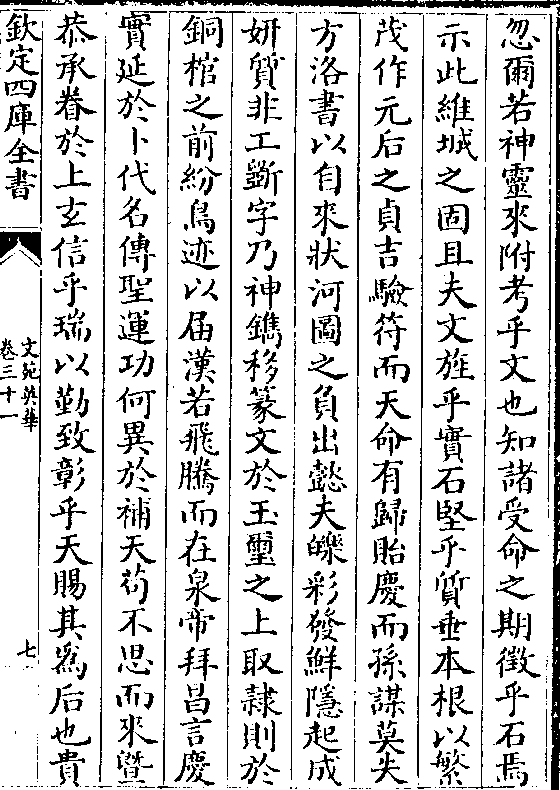 忽爾若神靈來附考乎文也知諸受命之期徵乎石焉
示此維城之固且夫文旌乎實石堅乎質垂本根以繁
茂作元后之貞吉驗符而天命有歸貽慶而孫謀莫失
方洛書以自來狀河圖之負出懿夫皪彩發鮮隱起成
妍質非工斵字乃神鐫移篆文於玉璽之上取隷則於
銅棺之前紛鳥迹以届漢若飛騰而在泉帝拜昌言慶
實延於卜代名傳聖運功何異於補天茍不思而來曁
恭承眷於上玄信乎瑞以勤致彰乎天賜其為后也貴
欽定四庫全書
文苑英華
卷三十一
七